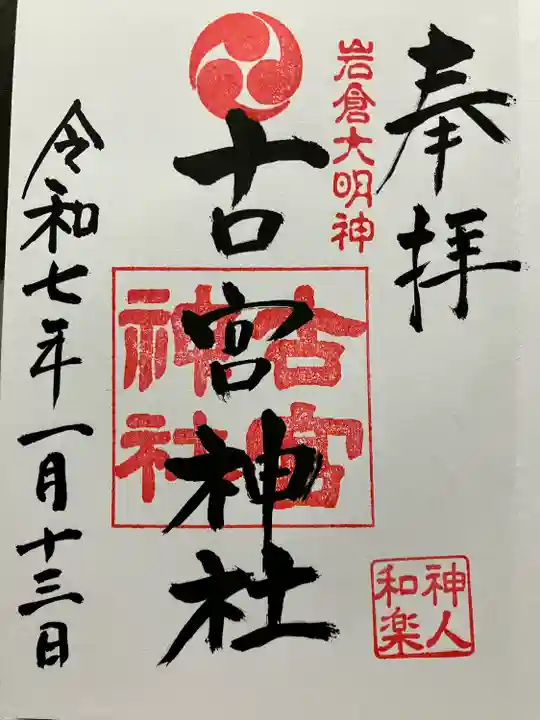 奉拝
岩倉大明神
古宮神社
古宮
神社
神人
和楽
令和七年一月十三日